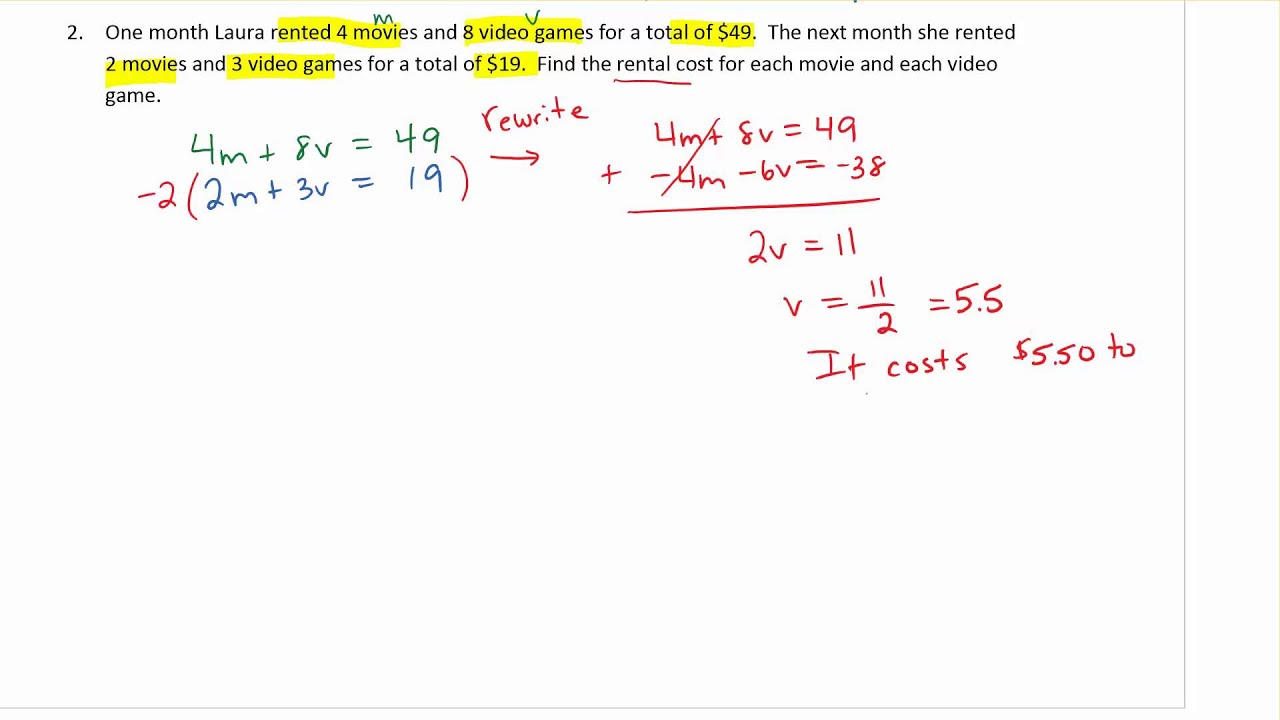 m v
2. One month Laura rented 4 movies and 8 video games for a total of $49. The next month she rented
2 movies and 3 video games for a total of $19. Find the rental cost for each movie and each video
game.
4m + 8v = 49
-2(2m + 3v = 19)
rewrite
→
4m + 8v = 49
+ -4m - 6v = -38
2v = 11
v = 11/2 = 5.5
It costs $5.50 to